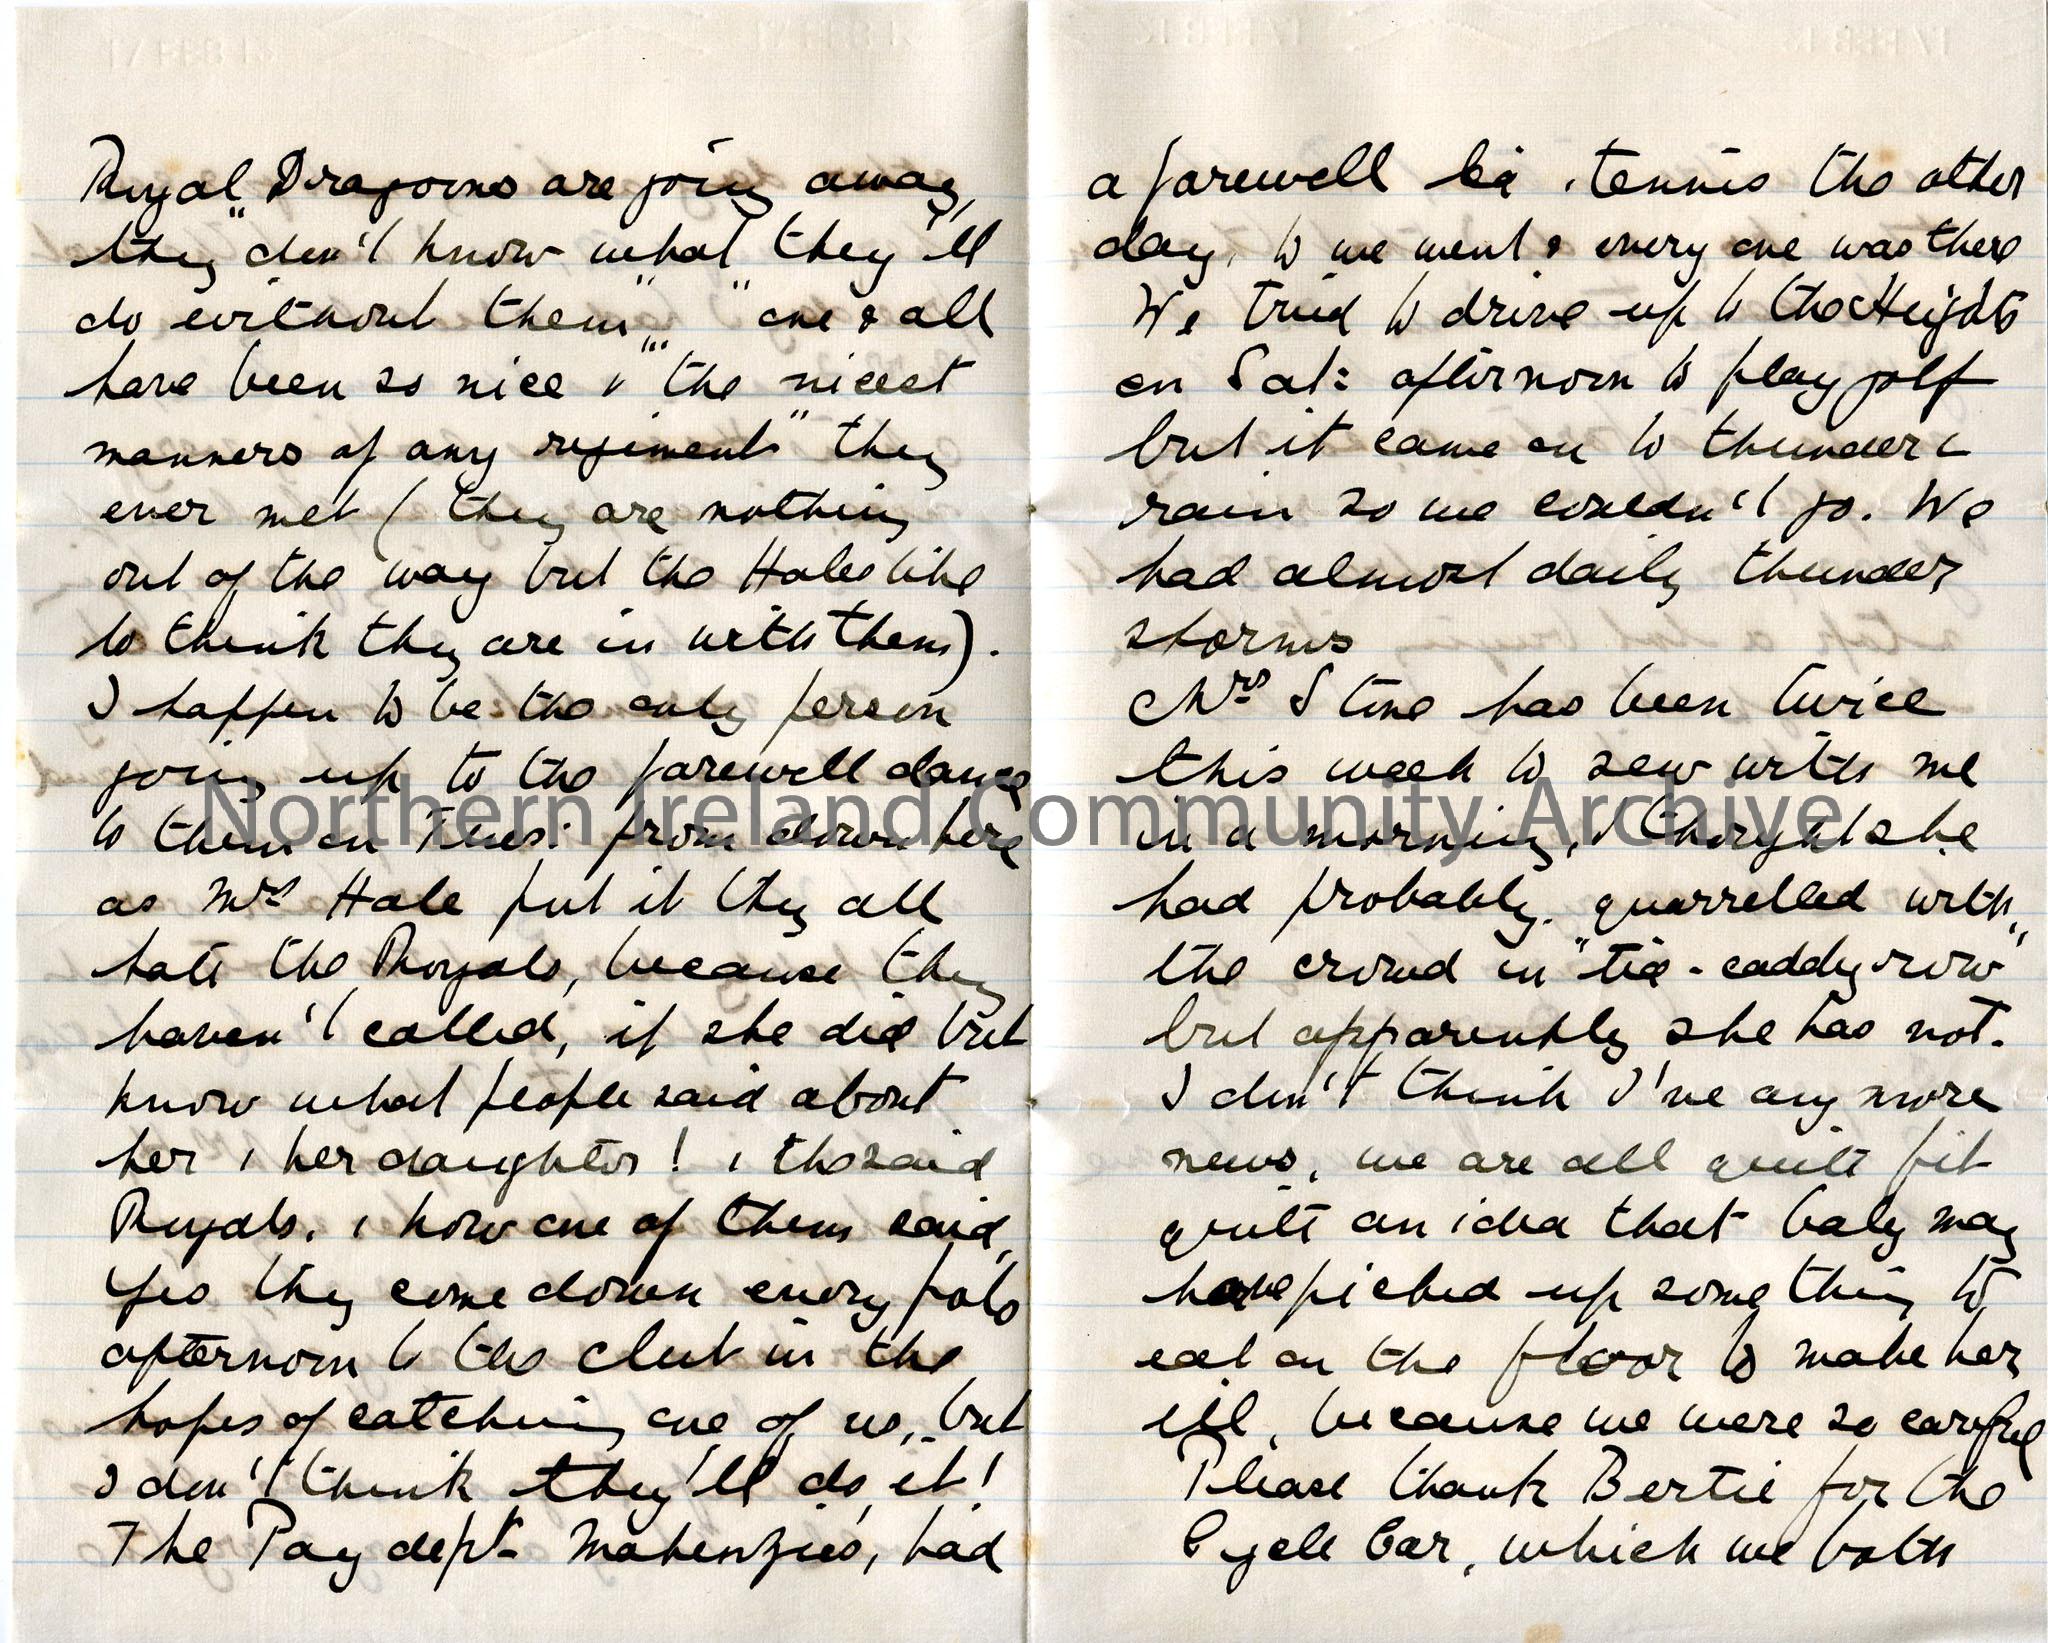 Royal Dragoons are going away,
they "don't know what they'll
do without them", "one & all
have been so nice" & "the nicest
manners of any regiment" they
ever met (they are nothing
out of the way but the Hales like
to think they are in with them).
I happen to be the only person
going up to the farewell dance
to them on Tues: from down here
as Mrs Hale put it they all
hate the Royals, because they
haven't called, if she did but
know what people said about
her & her daughter! & the said
Royals. & how one of them said,
Yes they come down every polo
afternoon to the club in the
hopes of catching one of us, but
I don't think they'll do it!
The Pay dept Makenzies, had
a farewell tea & tennis the other
day, so we went & every one was there
We tried to drive up to the Heights
on Sat: afternoon to play golf
but it came on to thunder &
rain so we couldn't go. We
had almost daily thunder
storms
Mrs Stone has been twice
this week to sew with me
in a morning, I thought she
had probably quarrelled with
the crowd in "tea-caddy row"
but apparently she has not.
I don't think I've any more
news, we are all quite fit
quite an idea that baby may
have picked up something to
eat on the floor to make her
ill, because we were so careful
Please thank Bertie for the
Cycle Car, which we both
Northern Ireland Community Archive